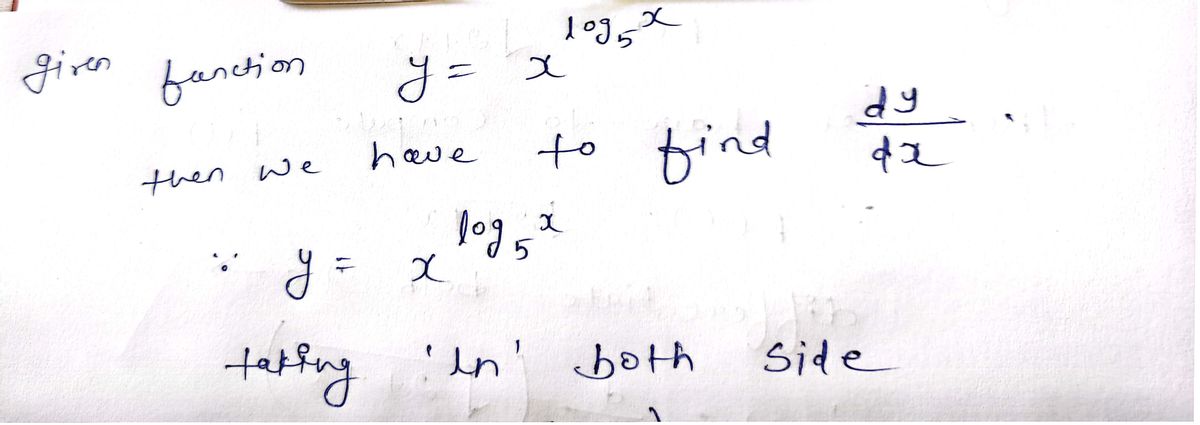 given function y = x^{log_5 x}
then we have to find \frac{dy}{dx}.
∵ y = x^{log_5 x}
taking 'ln' both side